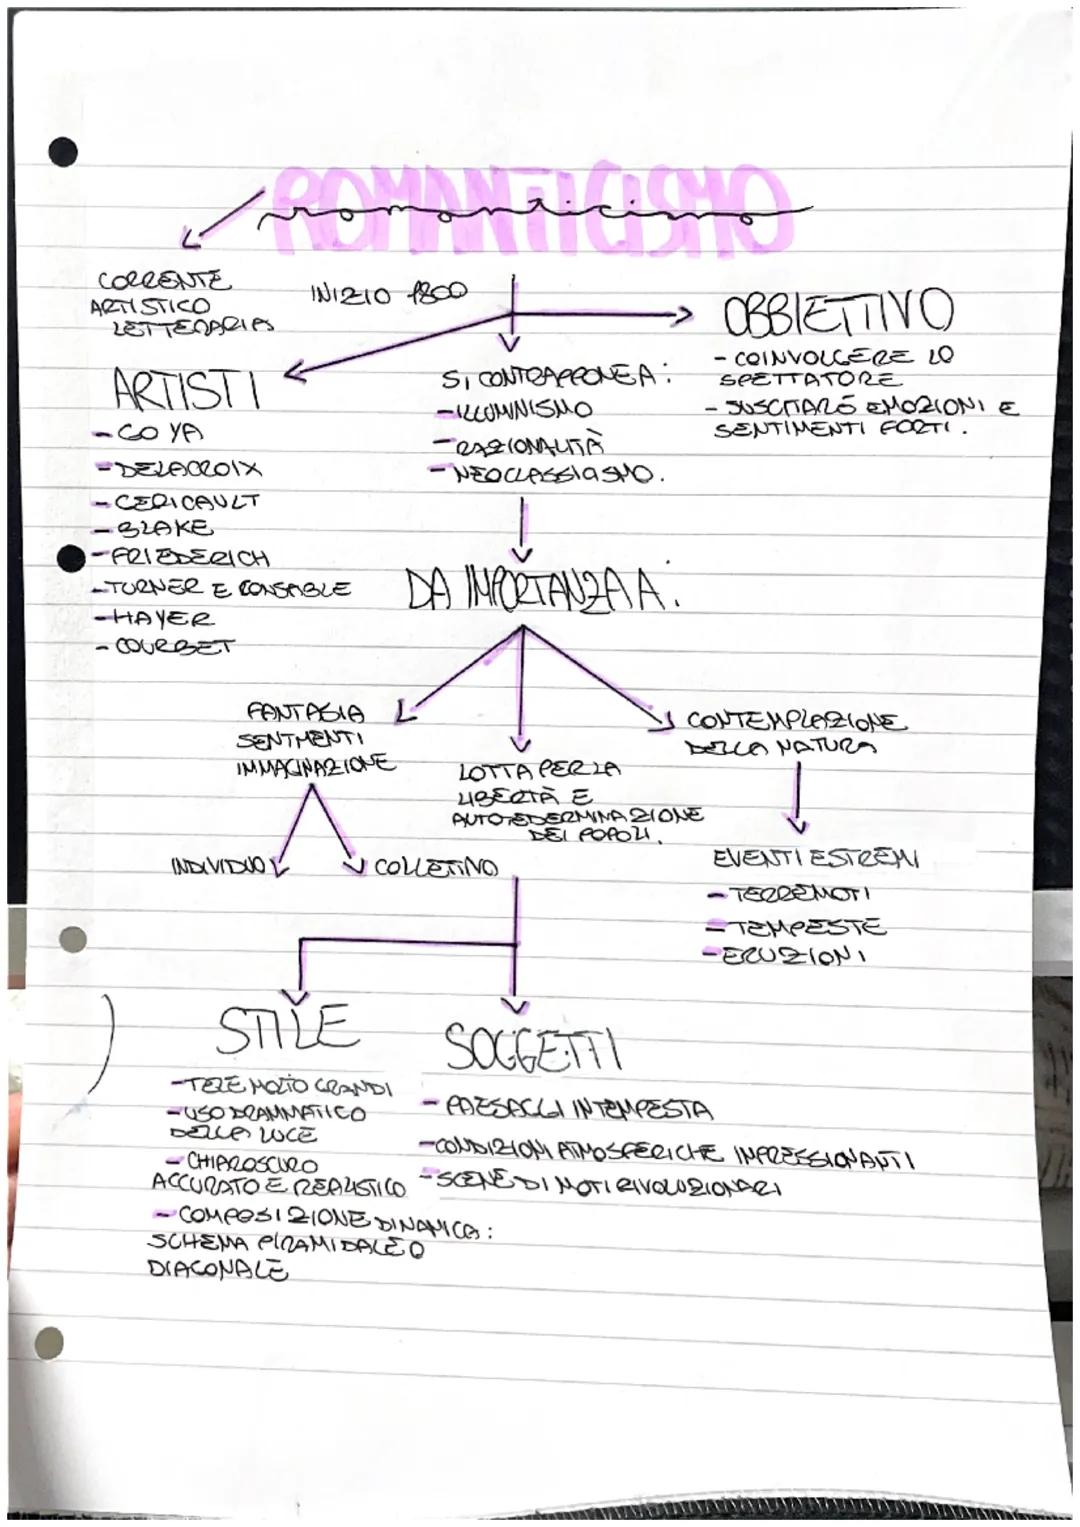 ROMANTICISMO
romanticismo
CORRENTE
ARTISTICO
LETTERARIA
INIZIO 1800
OBBIETTIVO
- COINVOLGERE LO
SPETTATORE
- SUSCITARE EMOZIONI E
SENTIMENTI FORTI.
ARTISTI
- GOYA
- DELACROIX
- GERICAULT
- BLAKE
- FRIEDERICH
- TURNER E CONSABLE
- HAYER
- COURBET
SI CONTRAPPONE A:
- ILLUMINISMO
- RAZIONALITÀ
- NEOCLASSICISMO.
DA IMPORTANZA A:
FANTASIA
SENTMENTI
IMMAGINAZIONE
INDIVIDUO
COLLETIVO
LOTTA PER LA
LIBERTÀ E
AUTOTEDERMINAZIONE
DEI POPOLI.
CONTEMPLAZIONE
DELLA NATURA
EVENTI ESTREMI
- TERREMOTI
- TEMPESTE
- ERUZIONI
STILE
- TELE MOLTO GRANDI
- USO DRAMMATICO
DELLA LUCE
- CHIAROSCURO
ACCURATO E REALISTICO
- COMPOSIZIONE DINAMICA:
SCHEMA PIRAMIDALE O
DIAGONALE
SOGGETTI
- PAESAGGI IN TEMPESTA
- CONDIZIONI ATMOSFERICHE IMPRESSIONANTI
- SCENE DI MOTI RIVOLUZIONARI